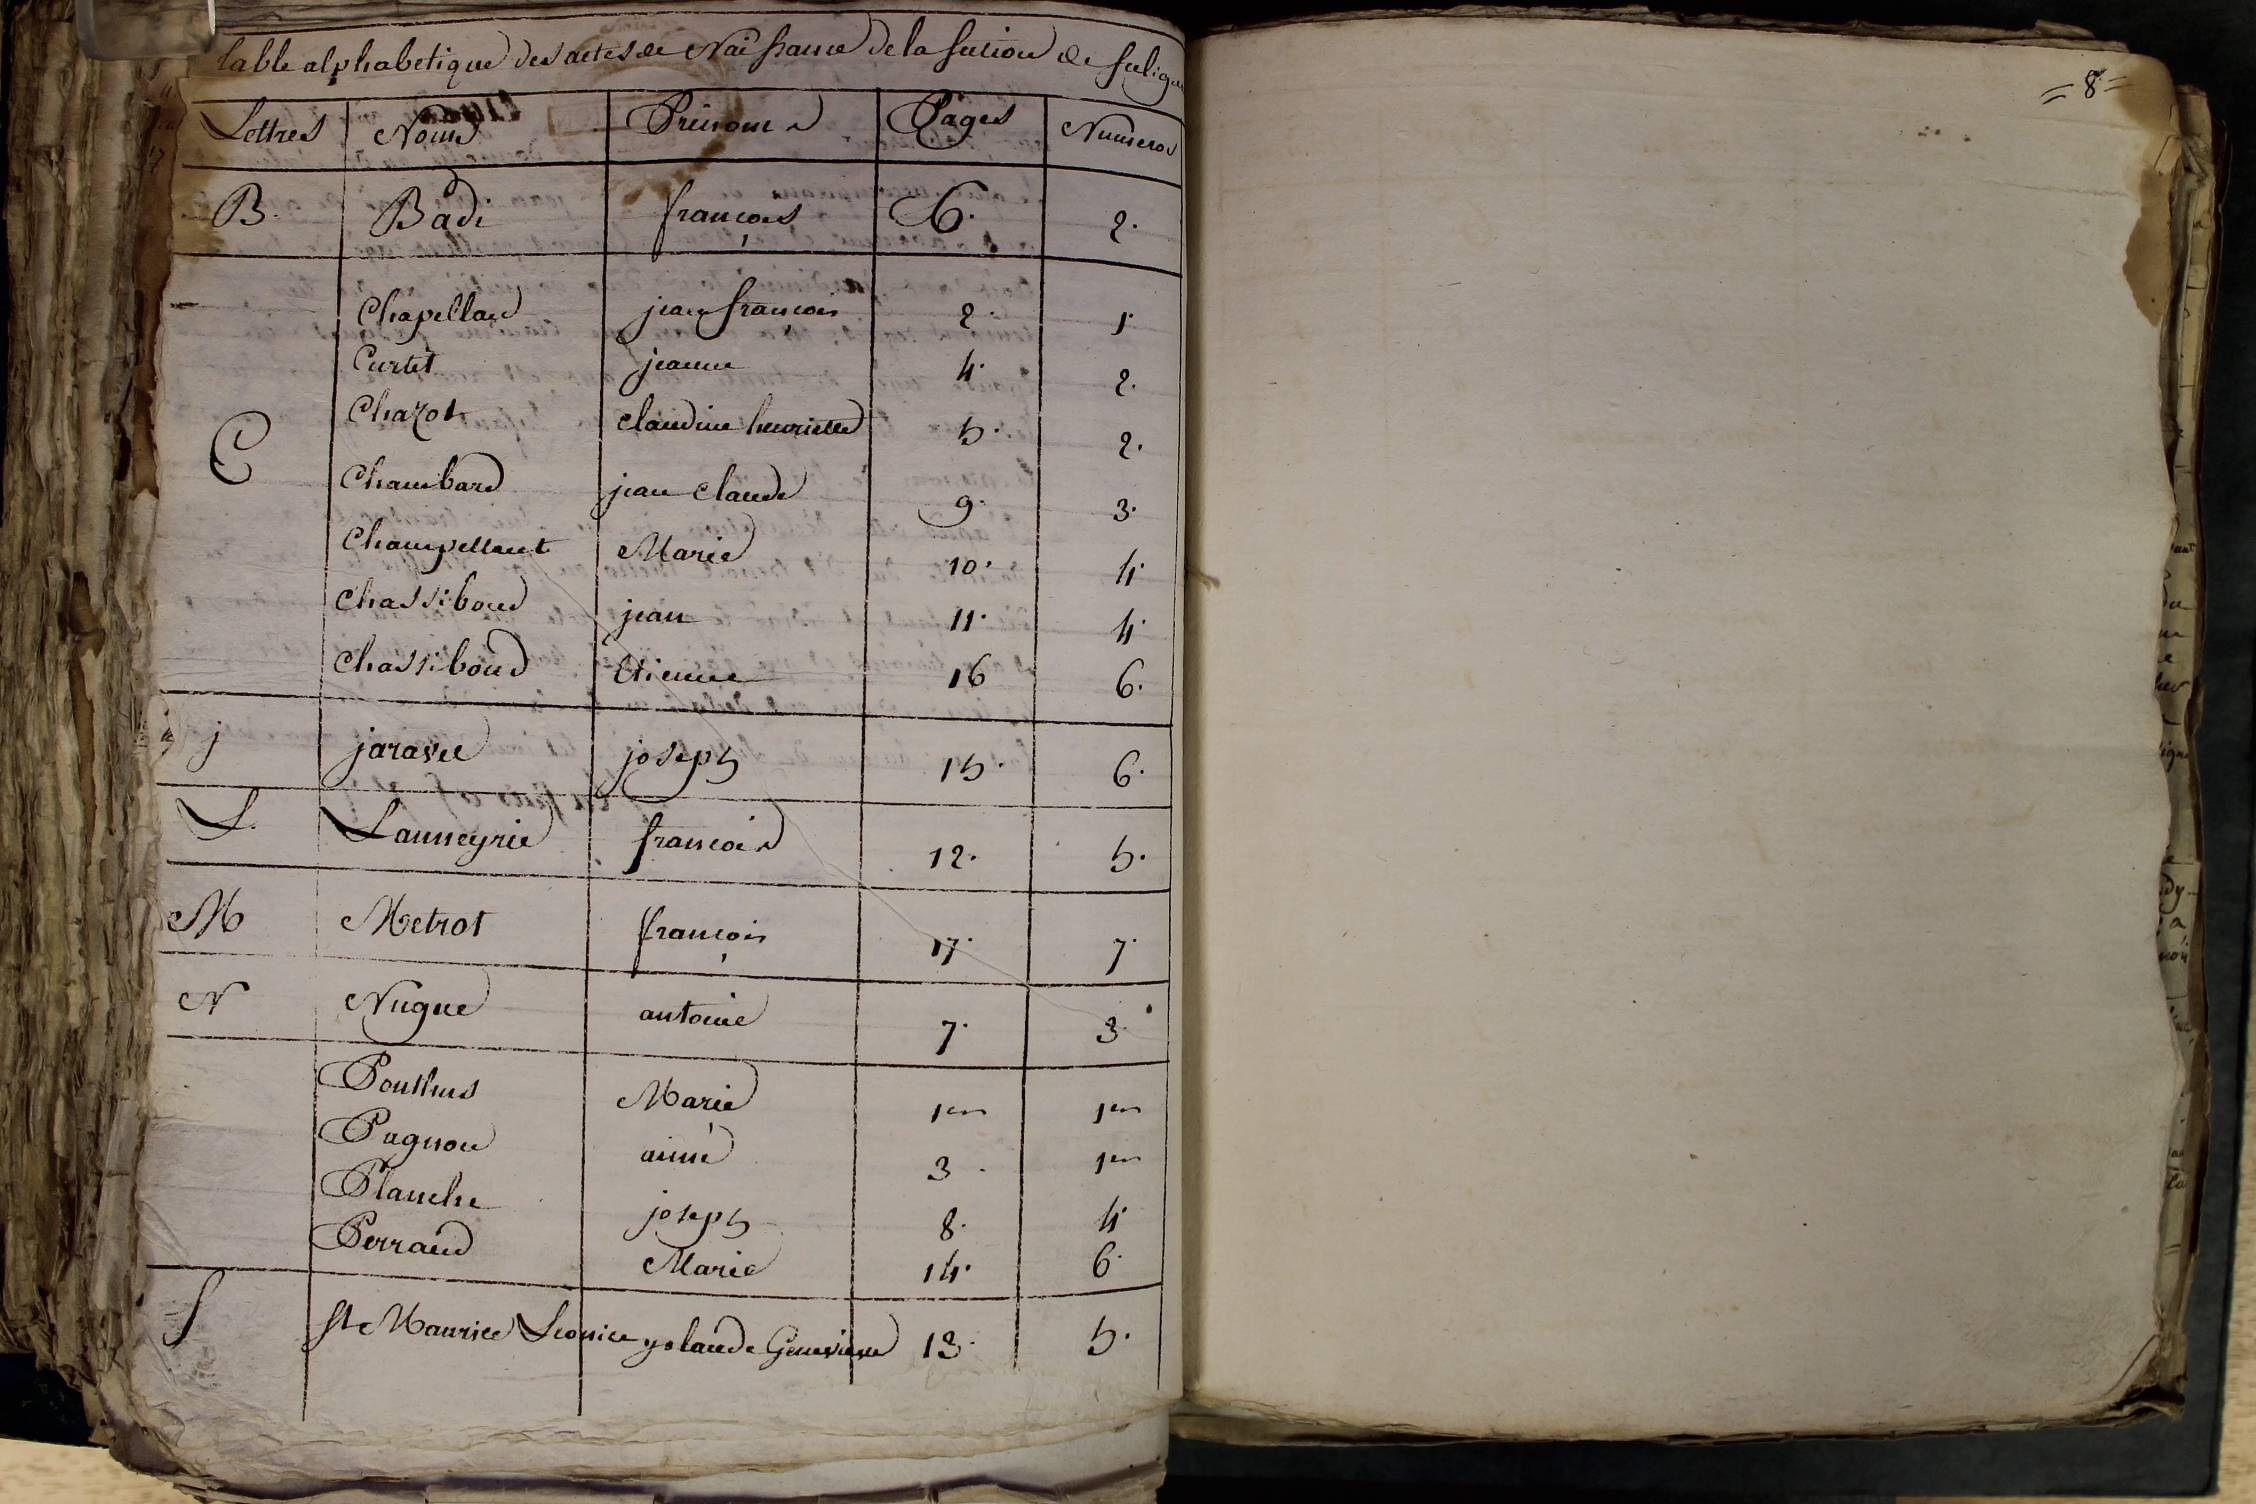 Table alphabetique des actes de Naissance de la section de fulign
Lettres Noms Prenoms Pages Numeros
B. Badi françois 6. 2.
Chapelland jean françois 2. 1.
Curtet jeanne 4. 2.
Chazot claudine henriette 5. 2.
C
Chambard jean claude 9. 3.
Champellant Marie 10. 4.
Chassiboud jean 11. 4.
Chassiboud Etienne 16 6.
j jaravel joseph 15. 6.
L. Lanneyrie françois 12. 5.
M Metrot françois 17. 7.
N Nugue antoine 7. 3.
Ponthus Marie 1er 1er
Pugnon aimé 3. 1er
Planche joseph 8. 4.
Perraud Marie 14. 6.
S St Maurice Leonice yolande Genevieve 13. 5.
= 8 =